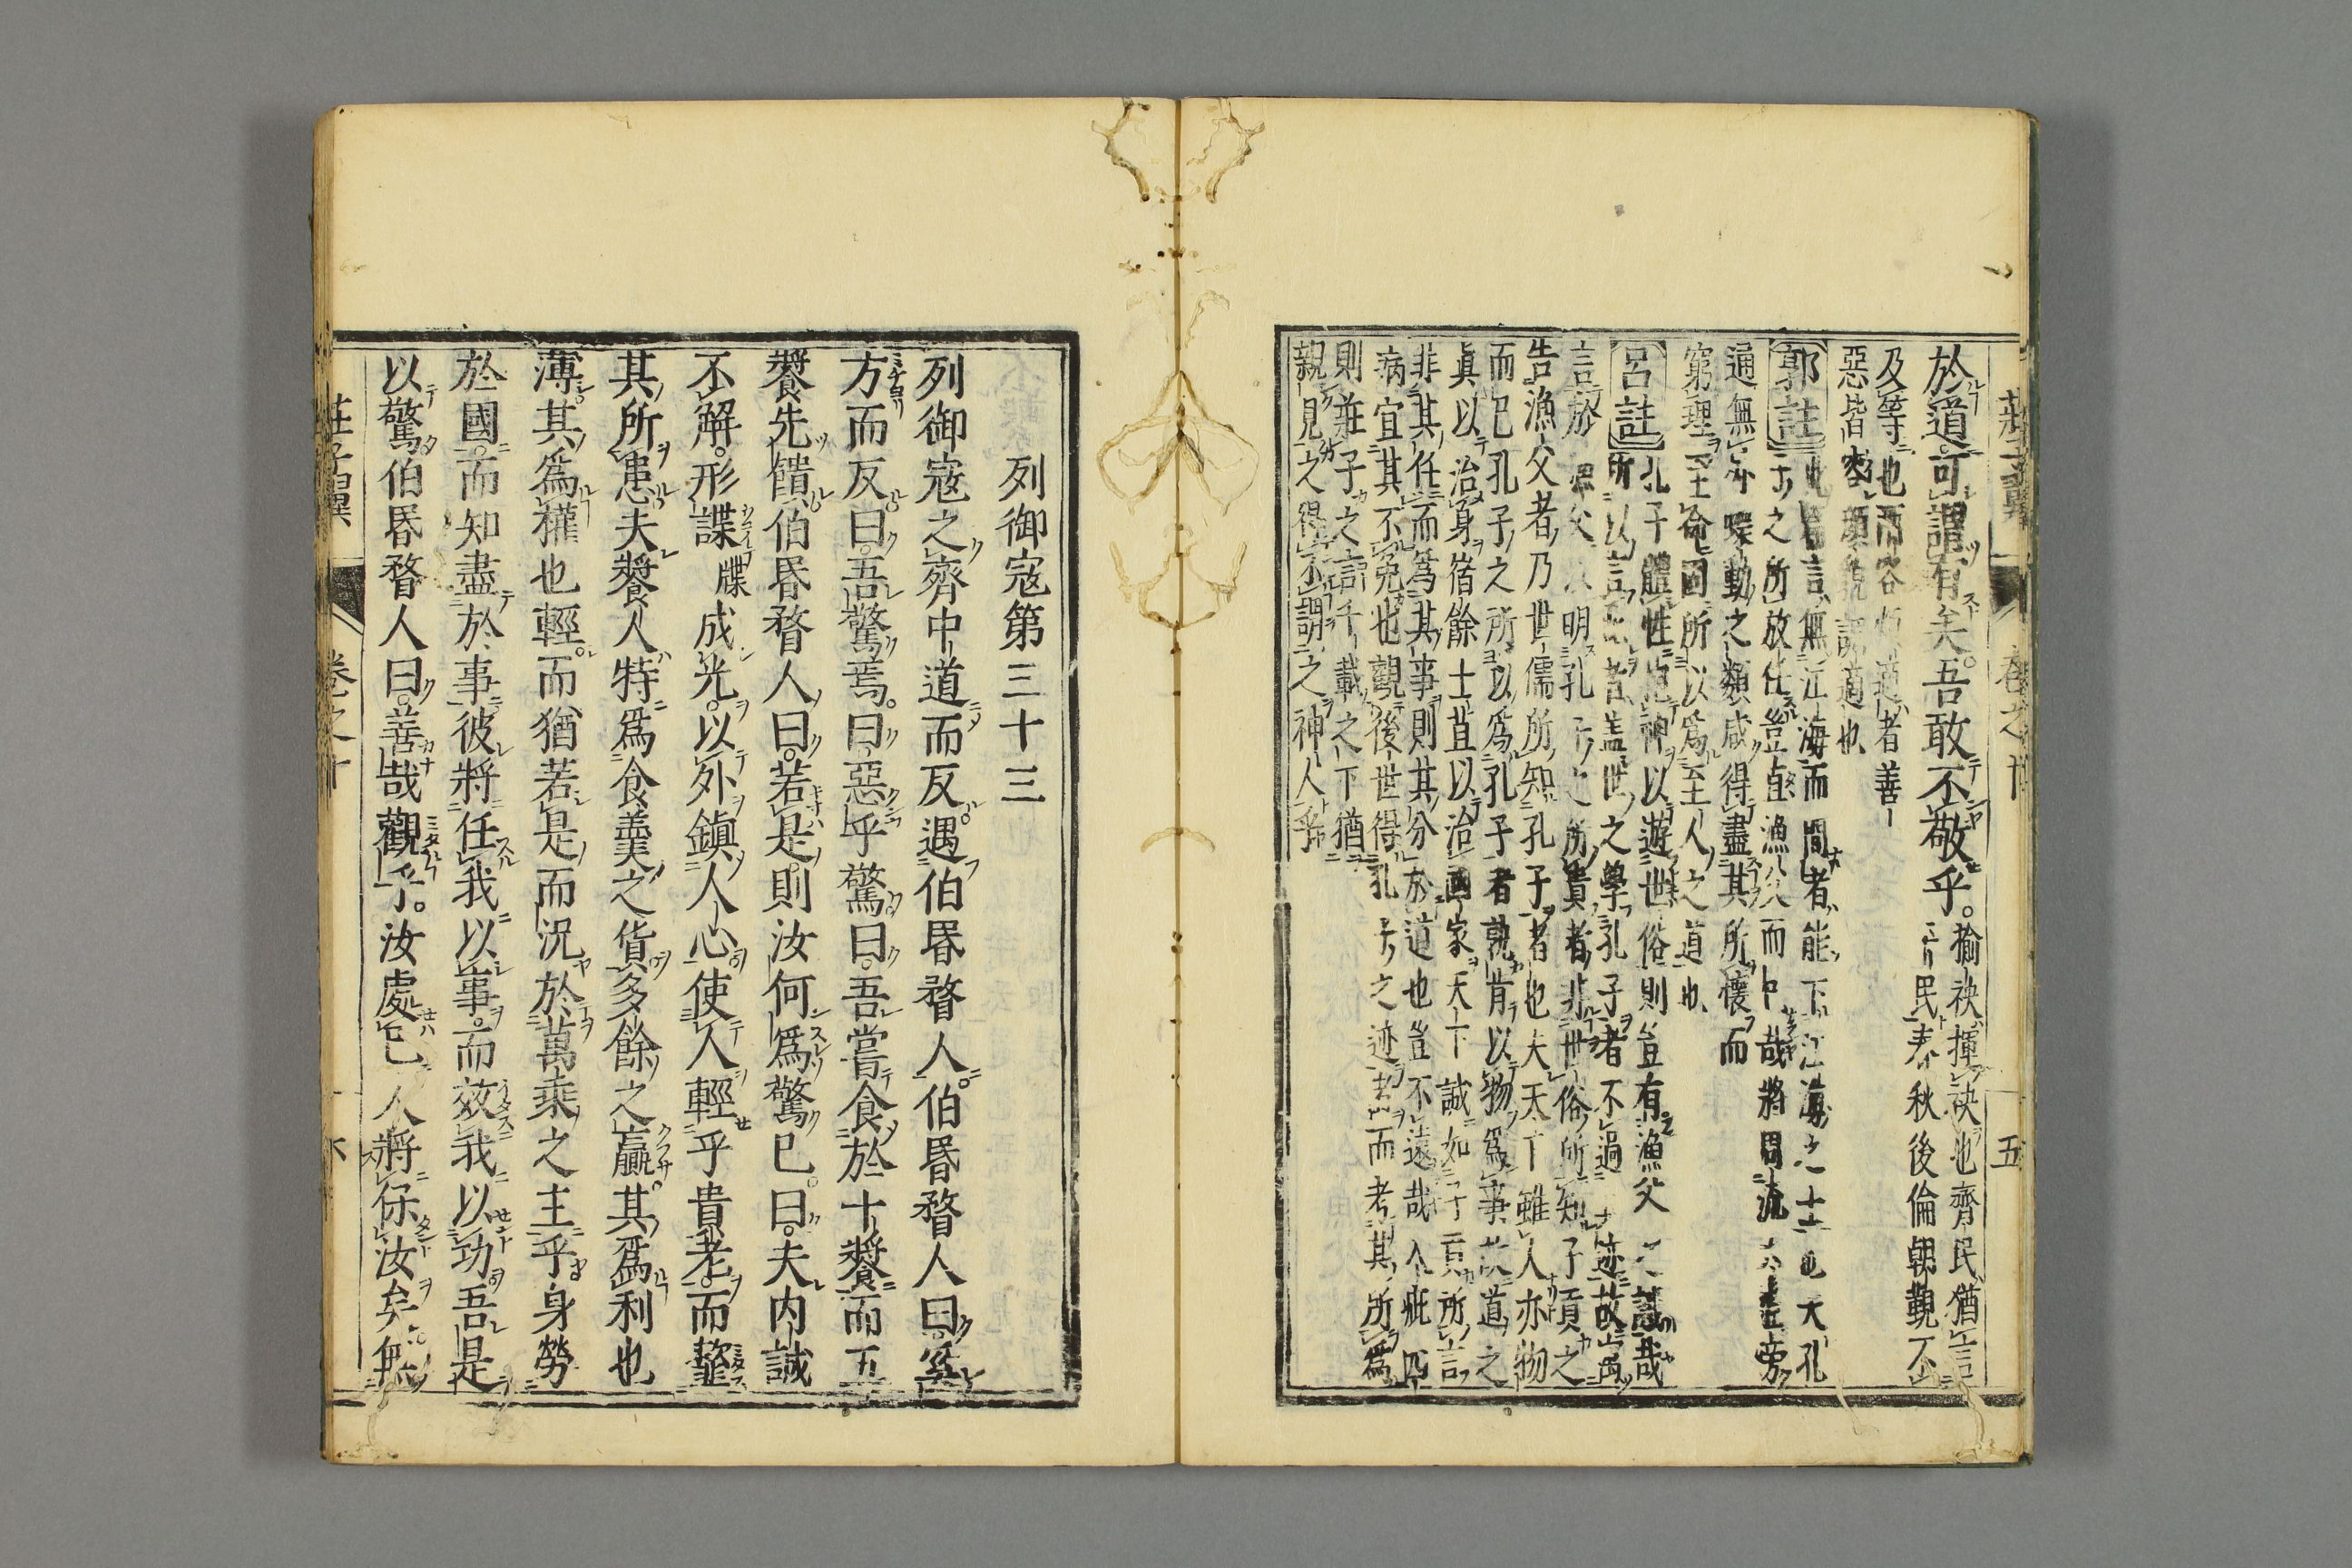 於道可謂有矣。吾敢不敬乎。
揄袂揮袂也齊民猶言
民春秋後倫朝覲不
及等也兩容頗適者善
惡皆容顔貌調適也
郭註
此篇言無江海而間者能下江海之士也夫孔
子之所放任豈直漁父而已哉將周流六虚旁
通無外蠕動之類咸得盡其所懷而
窮理至命固所以爲至人之道也
呂註
孔子體性抱神以遊世俗則豈有漁父之譏哉
所以言者蓋世之學孔子者不過其迹故寓
言於漁父以明孔子之所貴者非世俗所知子貢之
告漁父者乃世儒所知孔子者也夫天下雖人亦物
而已孔子之所以爲孔子者孰肯以物爲事故道之
眞以治身緒餘土苴以治國家天下誠如子貢所言
非其任而爲其事則其分於道也豈不遠哉人疵
病宜其不免也觀後世得孔子之迹而考其所爲
則莊子之言千載之下猶
親見之得不謂之神人乎
莊子翼 卷之十 五
列御寇第三十三
列御寇之齊中道而反。遇伯昬瞀人。伯昬瞀人曰奚
方而反曰。吾驚焉。曰惡乎驚曰。吾嘗食於十饗而五
饗先饋伯昬瞀人曰。若是則汝何爲驚已。曰。夫内誠
不解。形諜牒成光。以外鎭人心使人輕乎貴老。而韲
其所患夫饗人特爲食羹之貨多餘之贏。其爲利也
薄。其爲權也輕。而猶若是而況於萬乘之主乎身勞
於國。而知盡於事彼將任我以事。而效我以功吾是
以驚伯昬瞀人曰。善哉觀乎。汝處已人將保汝矣。無
莊子翼 卷之十